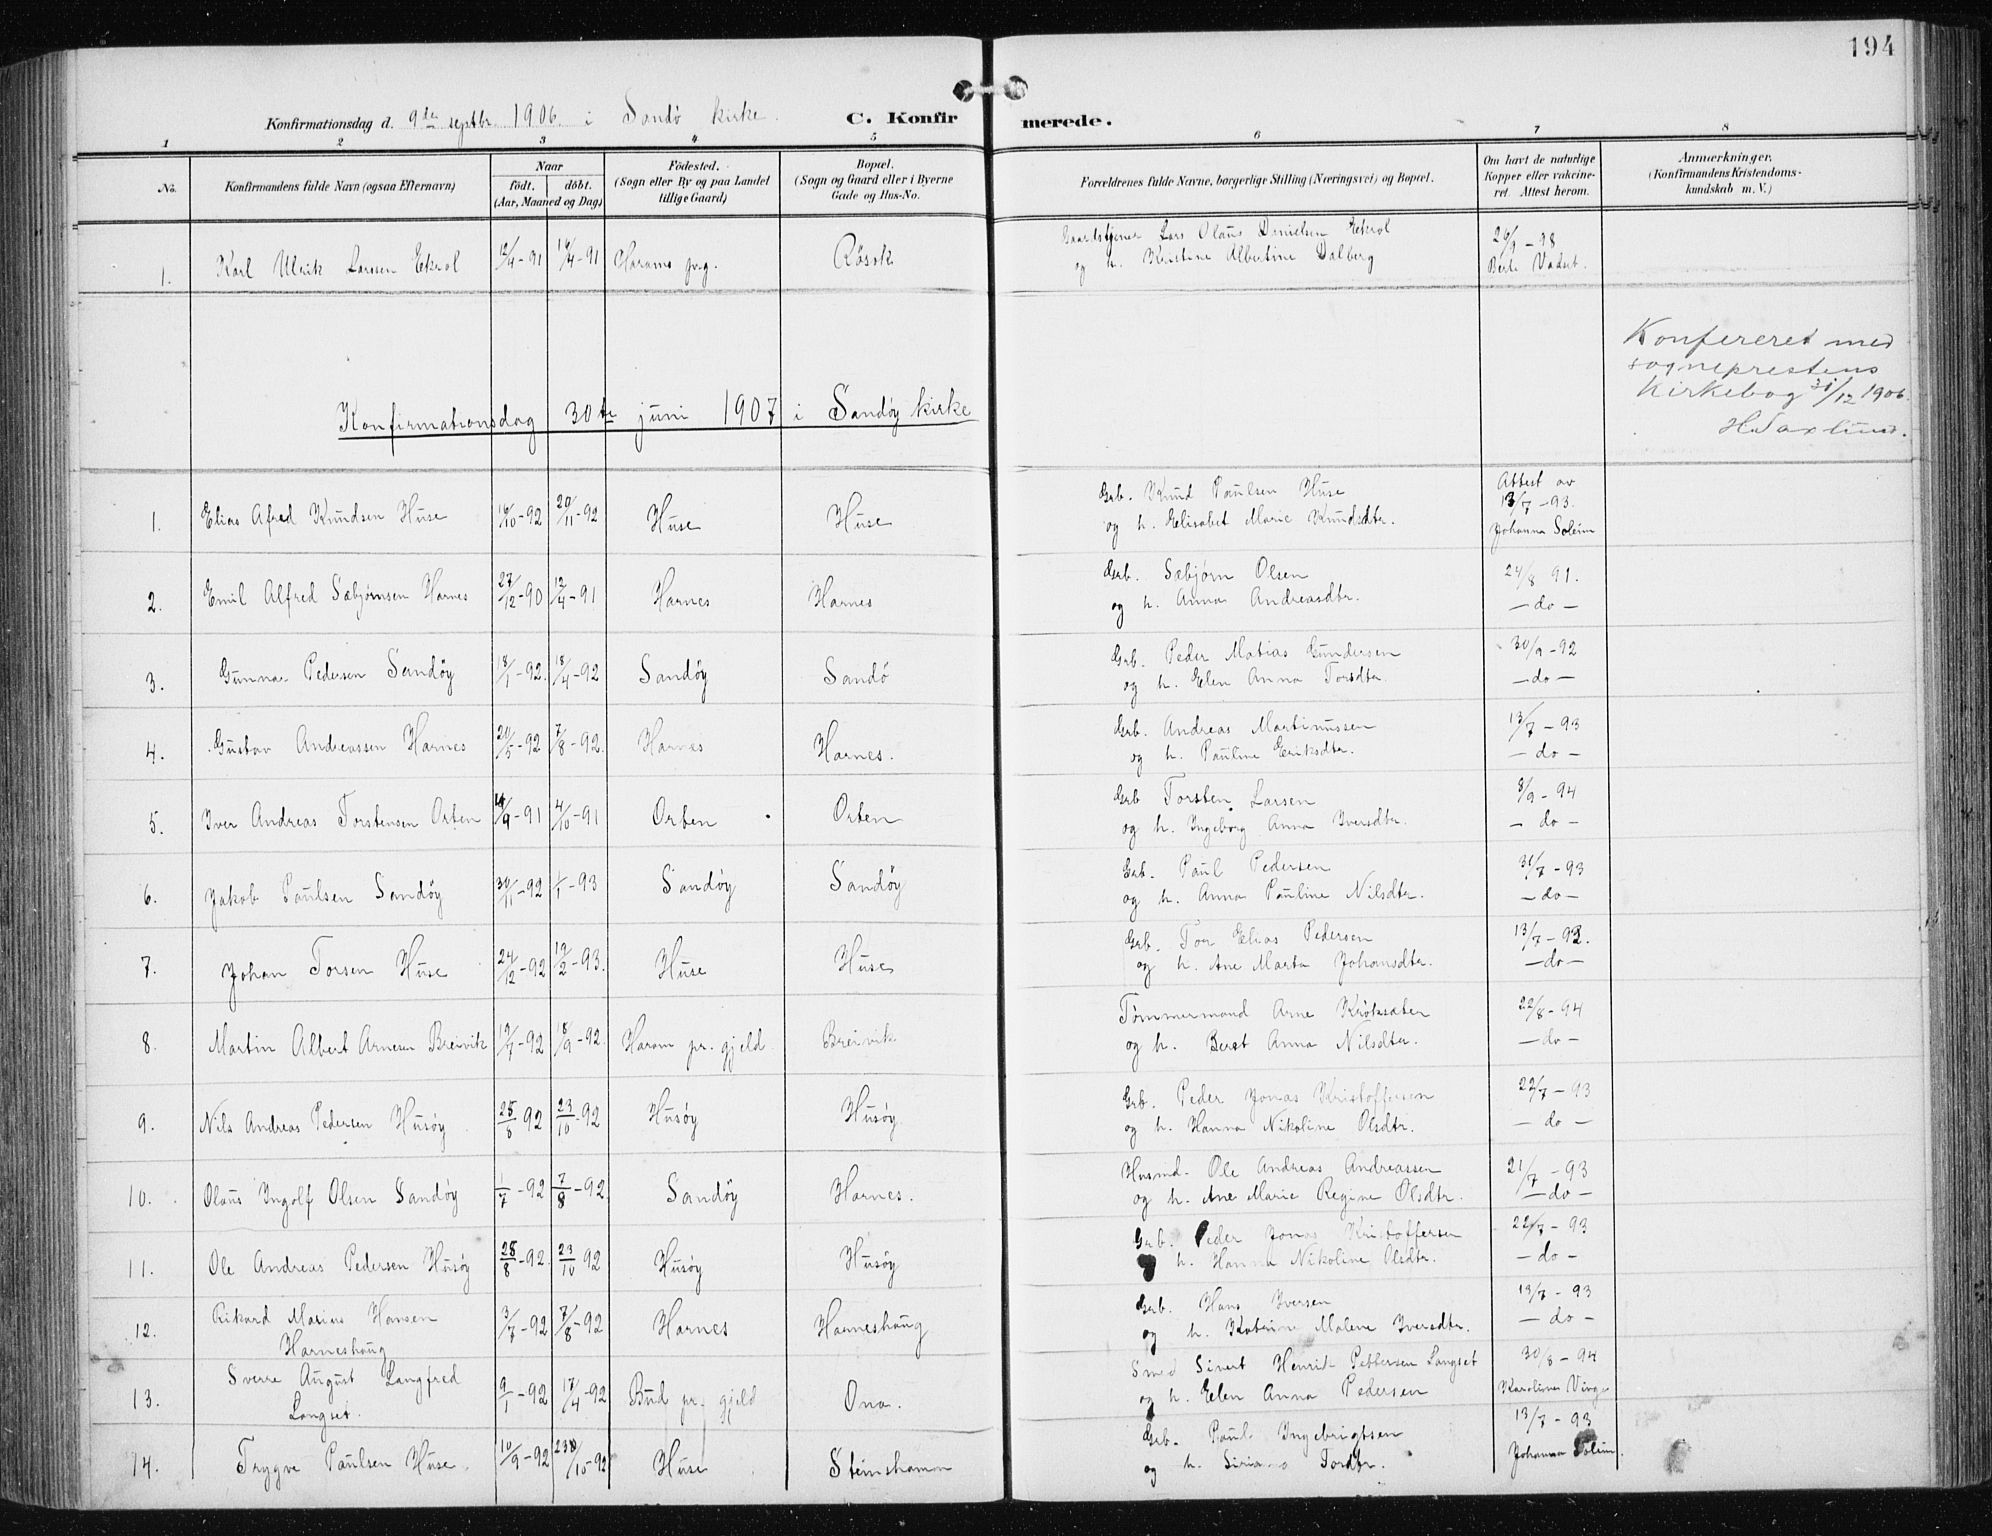 194
Konfirmationsdag d. 9de septbr. 1906 i Sandø kirke.
C. Konfirmerede.
1 2 3 4 5 6 7 8
No.
Konfirmandens fulde Navn (ogsaa Efternavn)
Naar
født. døbt.
(Aar, Maaned og Dag)
Fødested.
(Sogn eller By og paa Landet
tillige Gaard)
Bopæl.
(Sogn og Gaard eller i Byerne
Gade og Hus-No.
Forældrenes fulde Navne, borgerlige Stilling (Næringsvei) og Bopæl.
Om havt de naturlige
Kopper eller vakcine-
ret. Attest herom.
Anmærkninger.
(Konfirmandens Kristendoms-
kundskab m. V.)
1. Karl Ulrik Larssen Ekrol 12/4-91 19/4-91 Harams pr.g. Røsok Gaardstjener Lars Olaus Danielsen Ekrol 26/9-98
og h. Kristine Albertine Dalberg Berte Vadset.
Konfereret med
sogneprestens
Kirkebog 31/12 1906.
H Saxlund.
Konfirmationsdag 30te juni 1907 i Sandøy kirke
1. Elias Afred Knudsen Huse 16/10-92 20/11-92 Huse Huse Grb. Knud Paulsen Huse Attest av 13/7-93.
og h. Elisabet Marie Knudsdtr. Johanna Soleim
2. Emil Alfred Sæbjørnsen Harnes 27/12-90 12/4-91 Harnes Harnes Grb. Sæbjørn Olsen 24/8 91.
og h. Anna Andreasdtr. — do —
3. Gunnar Pedersen Sandøy 18/1-92. 18/4-92 Sandøy Sandø Grb. Peder Matias Gundersen 30/9-92
og h. Elen Anna Torsdtr. — do —
4. Gustav Andreassen Harnes 20/5-92 7/8-92. Harnes Harnes. Grb. Andreas Martinussen 13/7-93
og h. Pauline Eriksdtr. — do —
5. Iver Andreas Torstensen Orten /9-91 4/10-91 Orten Orten Grb Torsten Larsen 8/9-94
og h. Ingeborg Anna Iversdtr. — do —
6. Jakob Paulsen Sandøy 30/11-92 1/1-93 Sandøy Sandøy Grb. Paul Pedersen 31/7-93
og h. Anna Pauline Nilsdtr. — do —
7. Johan Torsen Huse 24/12-92 12/2-93. Huse Huse Grb. Tor Elias Pedersen 13/7-92.
og h. Ane Marta Johansdtr. — do —
8. Martin Albert Arnesen Breivik 12/7-92 18/9-92. Haram pr. gjeld Breivik Tømmermand Arne Kroksæter 22/8-94
og h. Beret Anna Nilsdtr. — do —
9. Nils Andreas Pedersen Husøy 25/8 92 23/10-92 Husøy Husøy Grb. Peder Jonas Kristoffersen 22/7-93
og h. Hanna Nikoline Olsdtr. — do —
10. Olaus Ingolf Olsen Sandøy 1/7-92 7/8-92. Sandøy Harnes. Husmd. Ole Andreas Andreassen 21/7-93
og h. Ane Marie Regine Olsdtr. — do —
11. Ole Andreas Pedersen Husøy 25/8-92. 23/10 92 Husøy Husøy Grb. Peder Jonas Kristoffersen 22/7-93
h. Hanna Nikoline Olsdtr. — do —
12. Rikard Marius Hansen 3/7-92 7/8-92 Harnes Harneshaug Grb. Hans Iversen 13/7-93
Harneshaug og h. Katrine Malene Iversdtr. — do —
13. Sverre August Langfred 9/1-92 17/4-92 Bud pr. gjeld Ona. Smed Sivert Henrik Pettersen Langset 30/8-94
Langset. og h. Elen Anna Pedersen Karoline Vinge
14. Trygve Paulsen Huse. 10/9-92 /10-92 Huse Steinshamn Grb. Paul Ingebrigtsen 13/7-93
og h. Siriana Torsdtr. Johanna Soleim.